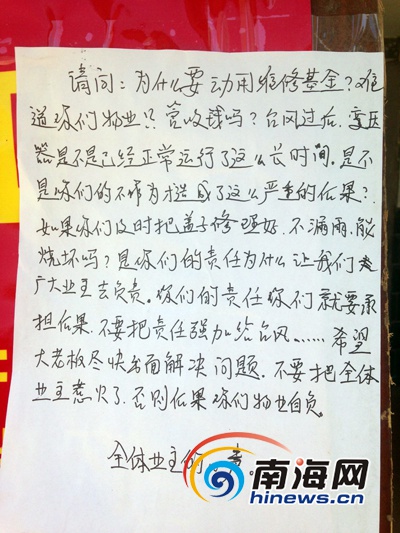 请问:为什么要动用维修基金?难
道你们物业只管收钱吗?台风过后,变压
器是不是已经正常运行了这么长时间,是不
是你们的不作为才造成了这么严重的后果?
如果你们及时把盖子修理好,不漏雨,能
烧坏吗?是你们的责任为什么让我们
广大业主去负责。你们的责任你们就要承
担后果,不要把责任强加给台风……希望
大老板尽快出面解决问题,不要把全体
业主惹火了,否则后果你们物业自负。
全体业主的
南海网
hinews.cn